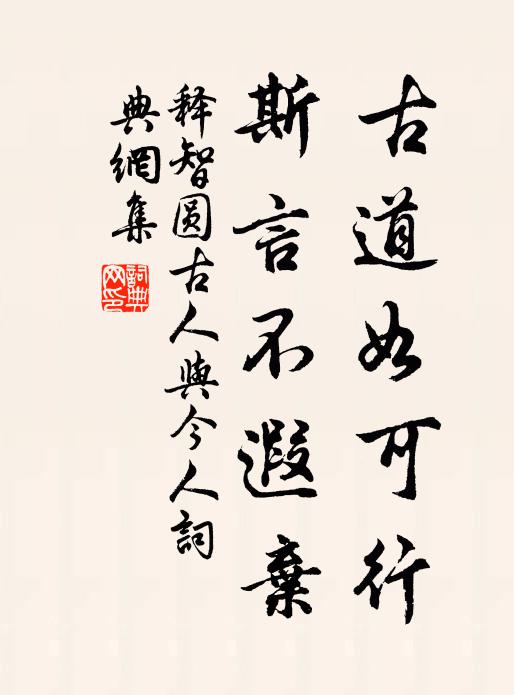 古道如可行
斯言不遐棄
释智圆古人與今人詞
典網集
詞典網印